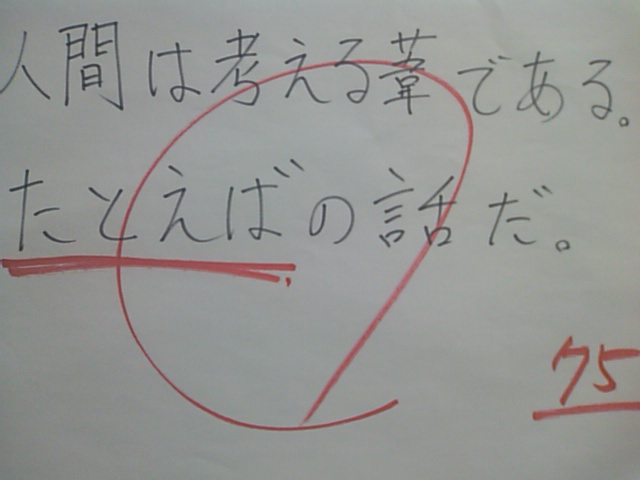 人間は考える葦である。
たとえばの話だ。
75